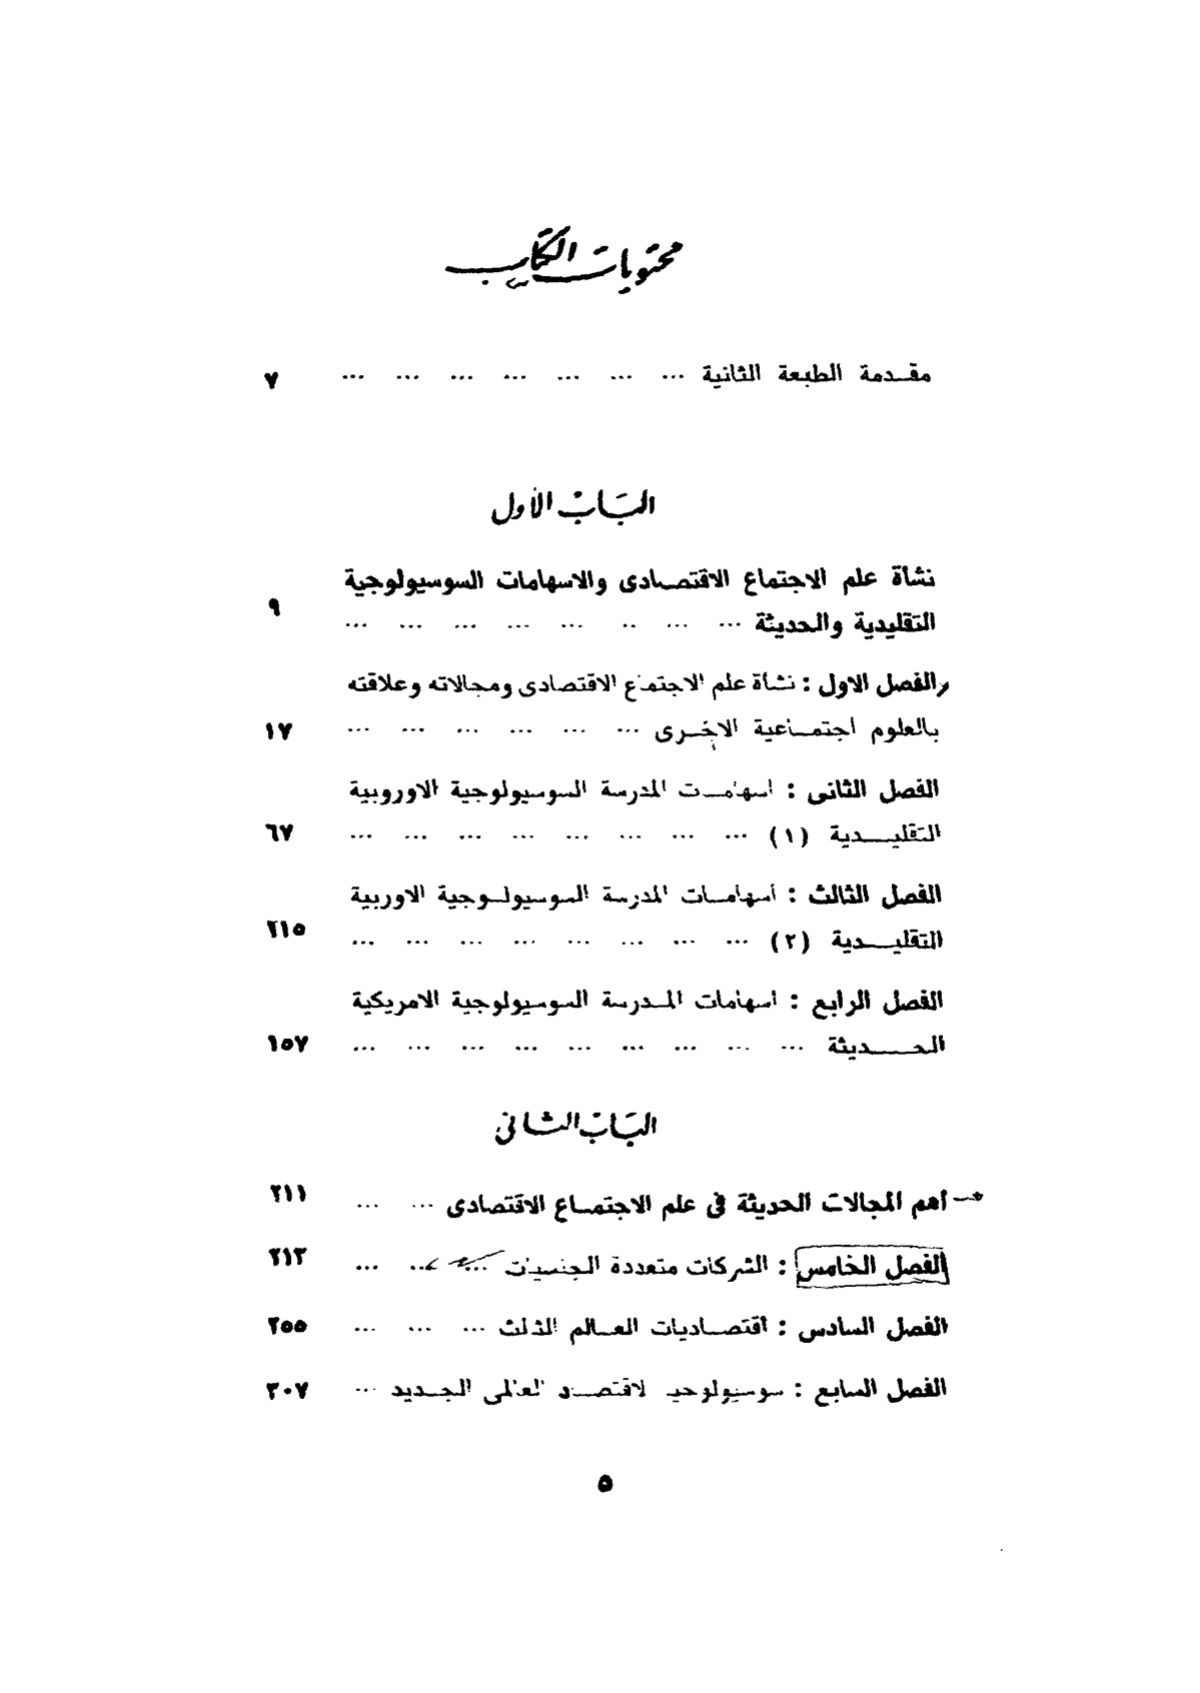 محتويات الكتاب
مقدمة الطبعة الثانية ... ... ... ... ... ... ... ٧
الباب الأول
نشأة علم الاجتماع الاقتصادى والاسهامات السوسيولوجية
التقليدية والحديثة ... ... .. ... ... ... ... ... ٩
الفصل الاول : نشأة علم الاجتماع الاقتصادى ومجالاته وعلاقته
بالعلوم اجتماعية الاخرى ... ... ... ... ... ... ١٧
الفصل الثانى : اسهامات المدرسة السوسيولوجية الاوروبية
التقليدية (١) ... ... ... ... ... ... ... ... ٦٧
الفصل الثالث : أسهامات المدرسة السوسيولوجية الاوربية
التقليدية (٢) ... ... ... ... ... ... ... ... ٢١٥
الفصل الرابع : اسهامات المدرسة السوسيولوجية الامريكية
الحديثة ... ... ... ... ... ... ... ... ... ١٥٧
الباب الثانى
أهم المجالات الحديثة فى علم الاجتماع الاقتصادى ... ... ٢١١
الفصل الخامس : الشركات متعددة الجنسيات ... ... ... ٢١٣
الفصل السادس : اقتصاديات العالم الثالث ... ... ... ٢٥٥
الفصل السابع : سوسيولوجيا الاقتصاد العالمى الجديد ... ٣٠٧
٥